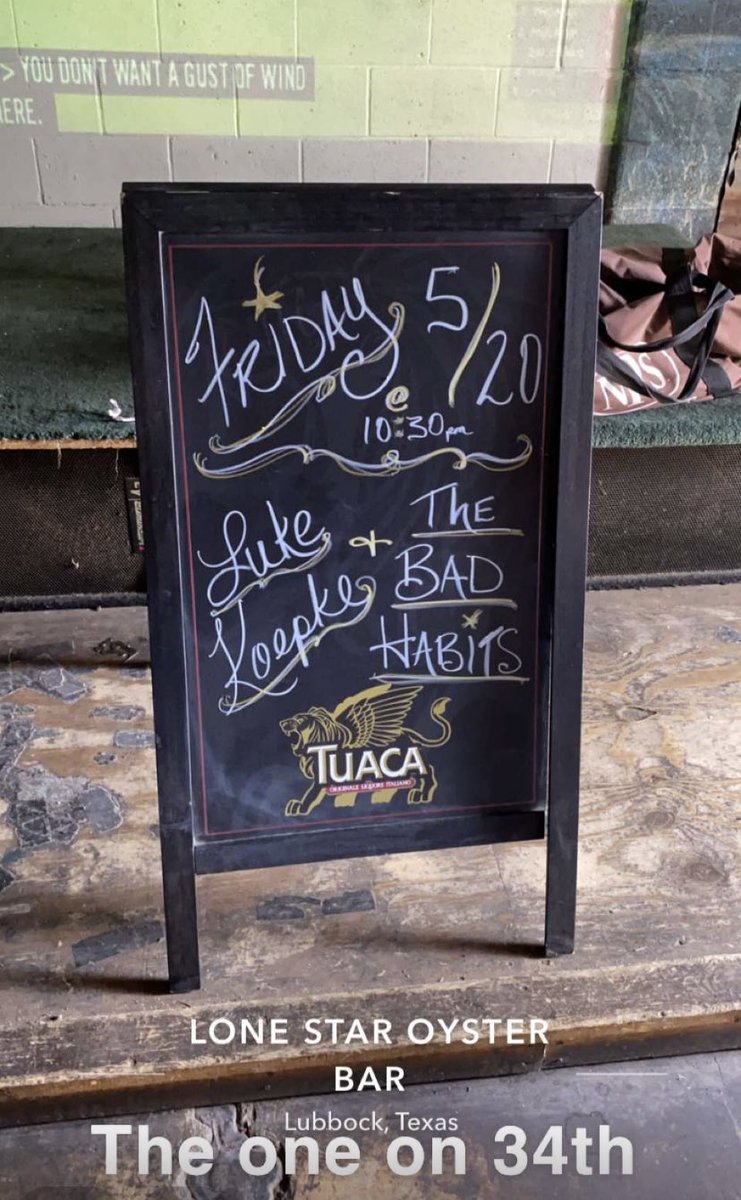 > YOU DON'T WANT A GUST OF WIND
ERE.
FRIDAY 5/20
@
10:30pm
Luke + The
Koepke BAD
HABITS
TUACA
ORIGINALE LIQUORE ITALIANO
LONE STAR OYSTER
BAR
Lubbock, Texas
The one on 34th